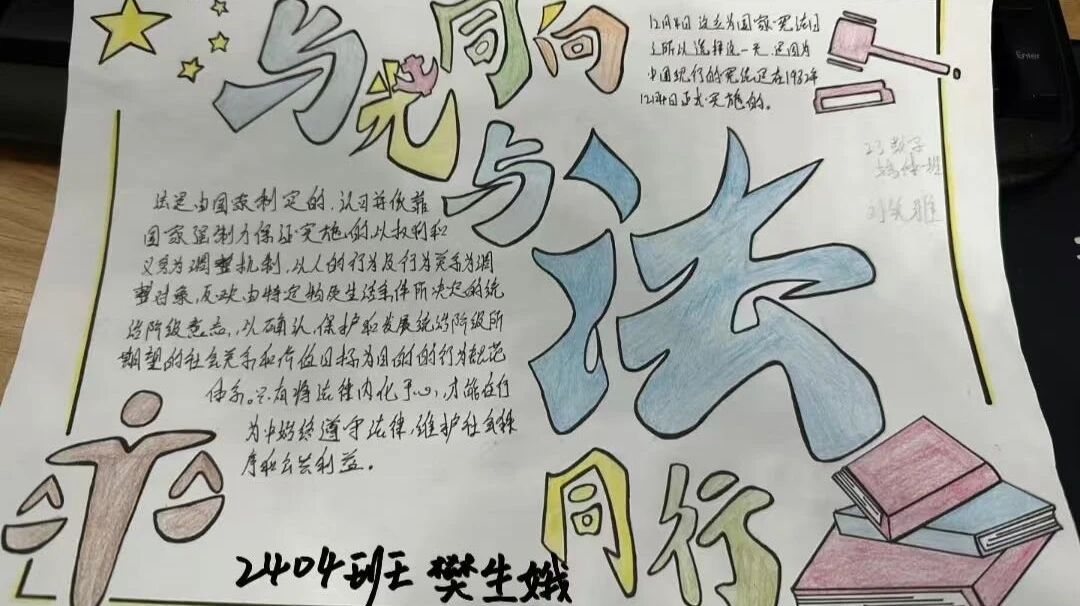 与光同向
与法
同行
12月4日设立为国家宪法日
之所以选择这一天,是因为
中国现行的宪法是在1982年
12月4日正式实施的。
23数字
一班
法是由国家制定的,认可并依靠
国家强制力保证实施的以权利和
义务为调整机制,以人的行为及行为关系为调
整对象,反映由特定物质生活条件所决定的统
治阶级意志,以确认、保护和发展统治阶级所
期望的社会关系和价值目标为目的的行为规范
体系。只有将法律内化于心,才能在行
为中始终遵守法律,维护社会秩
序和公共利益。
2404班 樊生娥
Enter